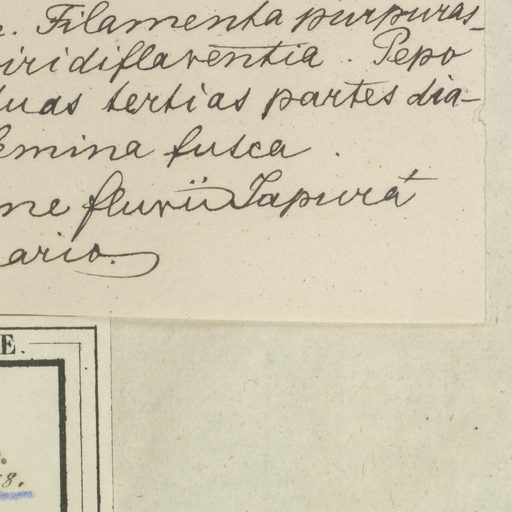 . Filamenta purpuras-
iridiflaventia. Pepo
duas tertias partes dia-
emina fusca.
ne fluvii Japurá
ario.
E.
8.